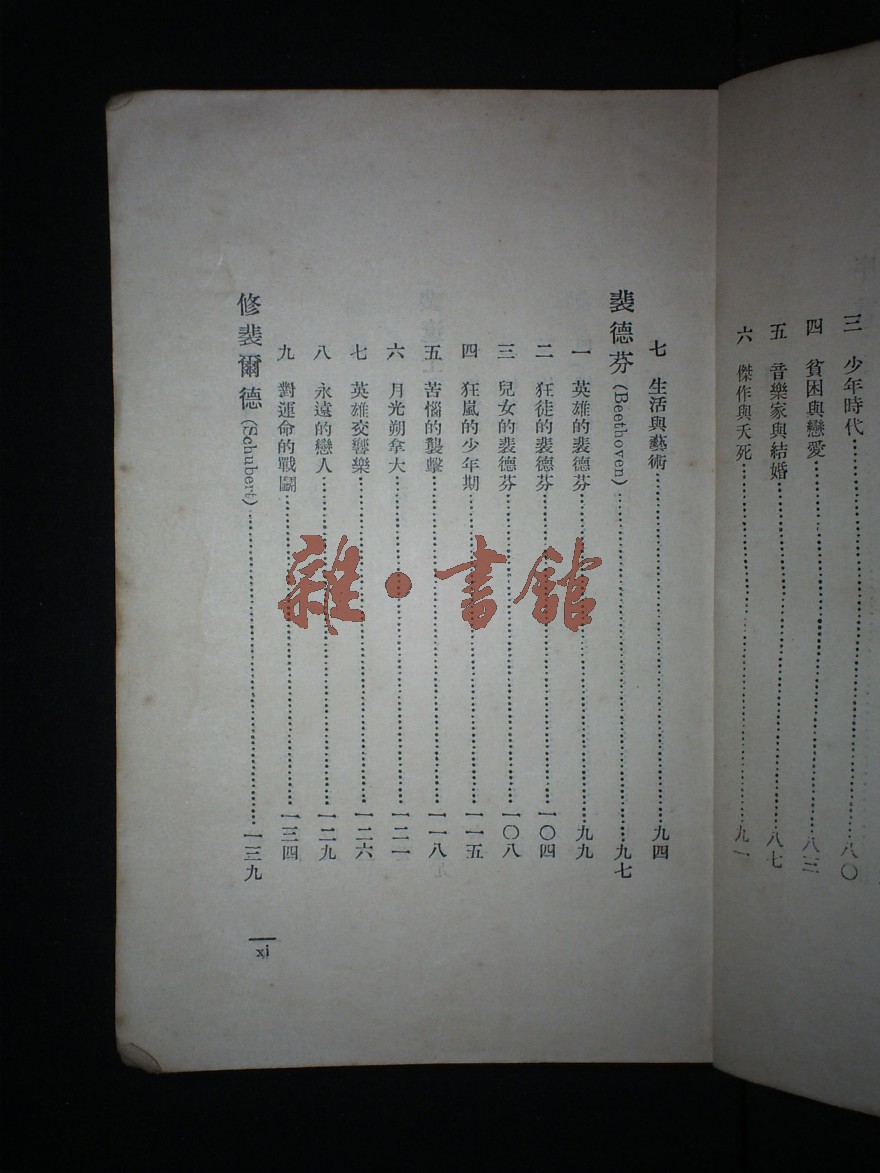 三 少年時代……八〇
四 貧困與戀愛……八三
五 音樂家與結婚……八七
六 傑作與夭死……九一
七 生活與藝術……九四
裴德芬 (Beethoven)……九七
一 英雄的裴德芬……九九
二 狂徒的裴德芬……一〇四
三 兒女的裴德芬……一〇八
四 狂嵐的少年期……一一五
五 苦惱的襲擊……一一八
六 月光朔拿大……一二一
七 英雄交響樂……一二六
八 永遠的戀人……一二九
九 對運命的戰鬭……一三四
修裴爾德 (Schubert)……一三九
xi
雜·書館